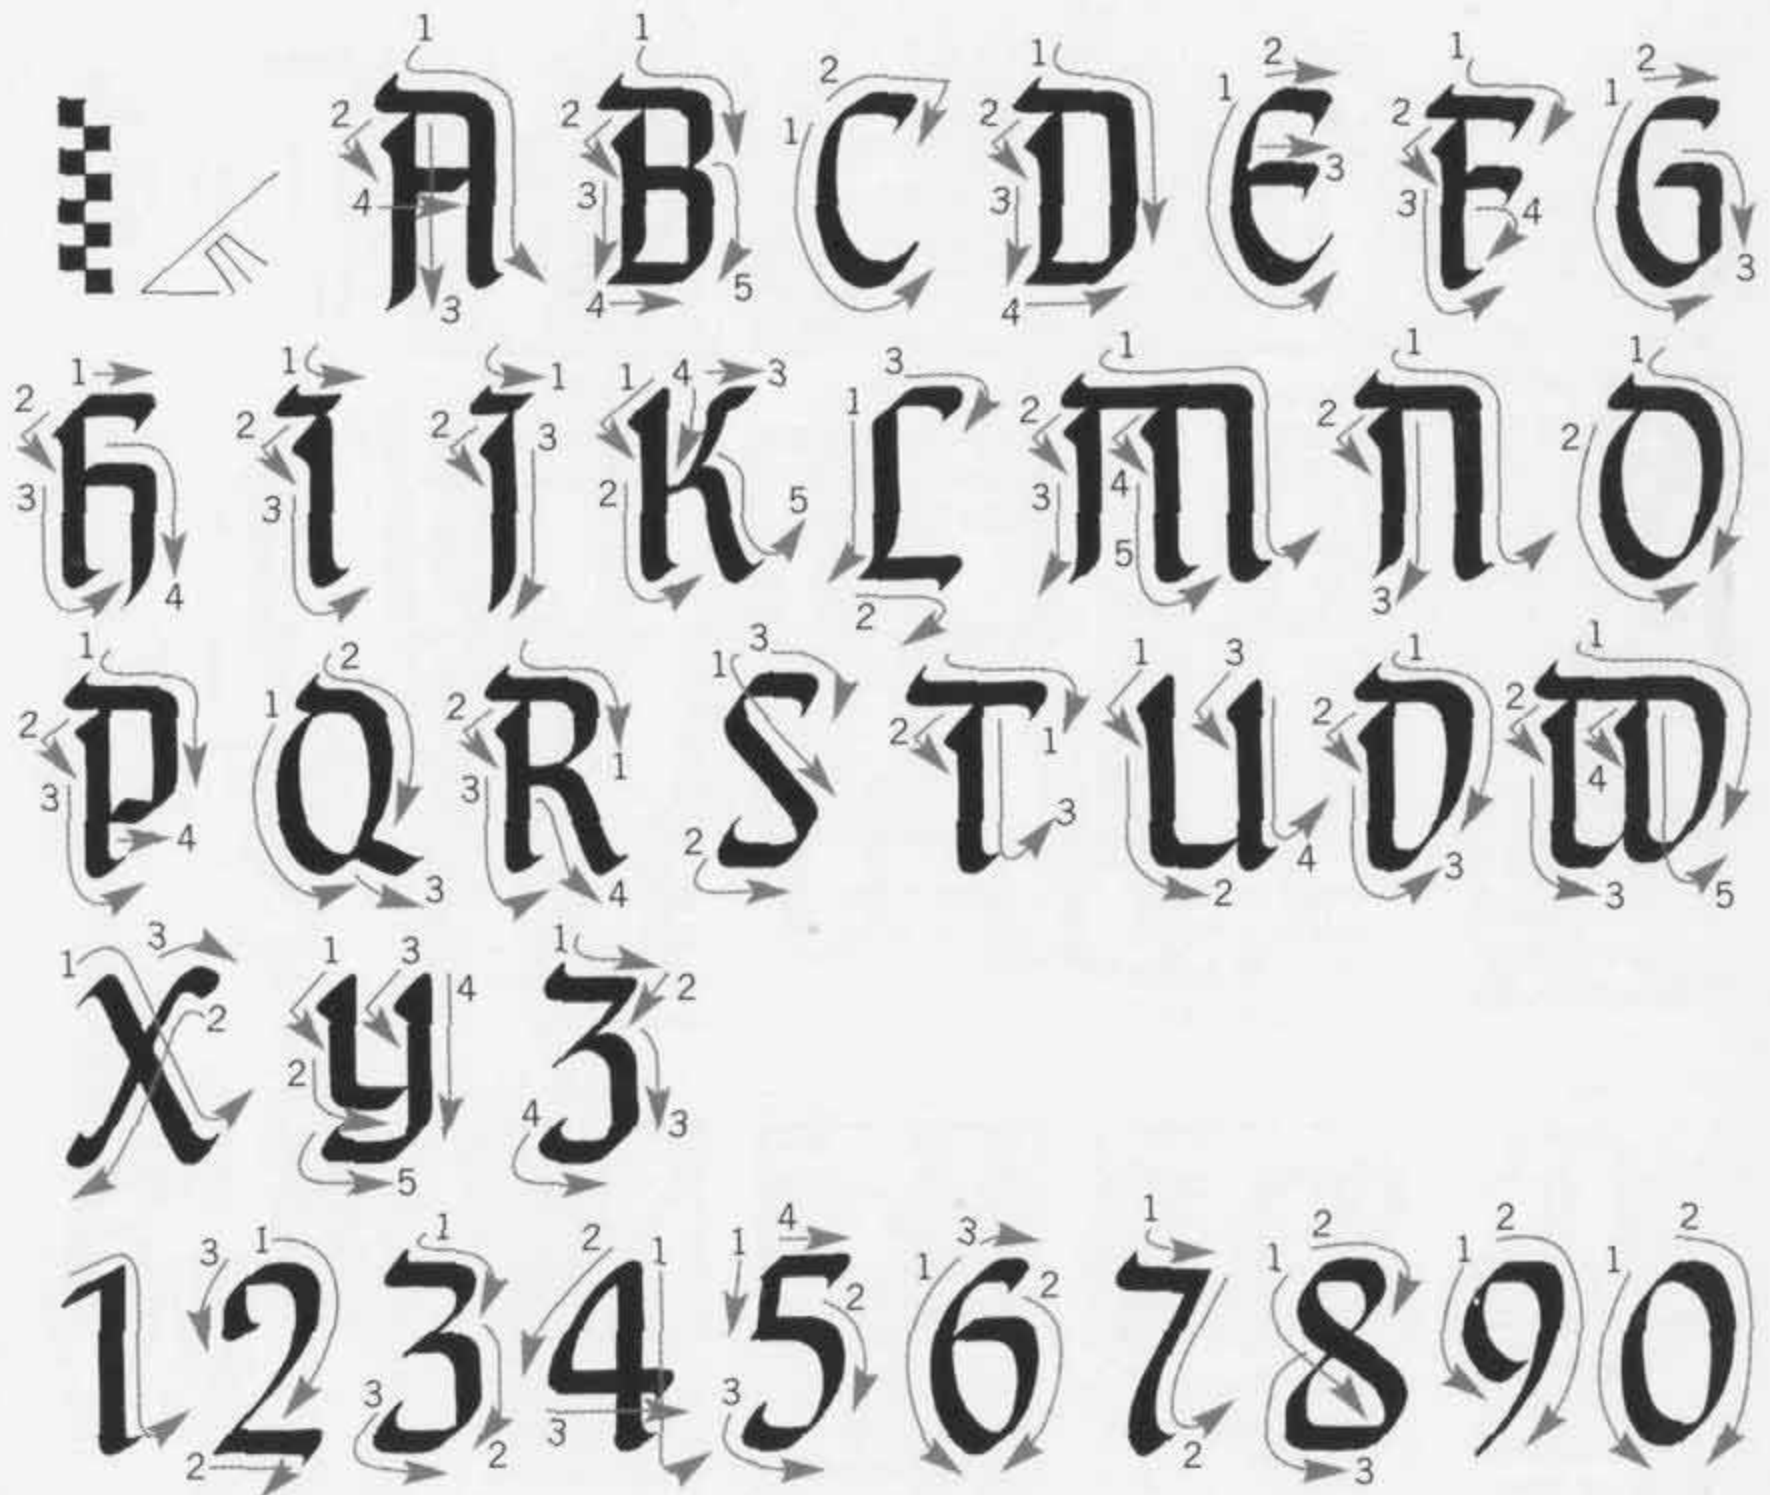 A B C D E F G
H I J K L M N O
P Q R S T U V W
X Y Z
1 2 3 4 5 6 7 8 9 0